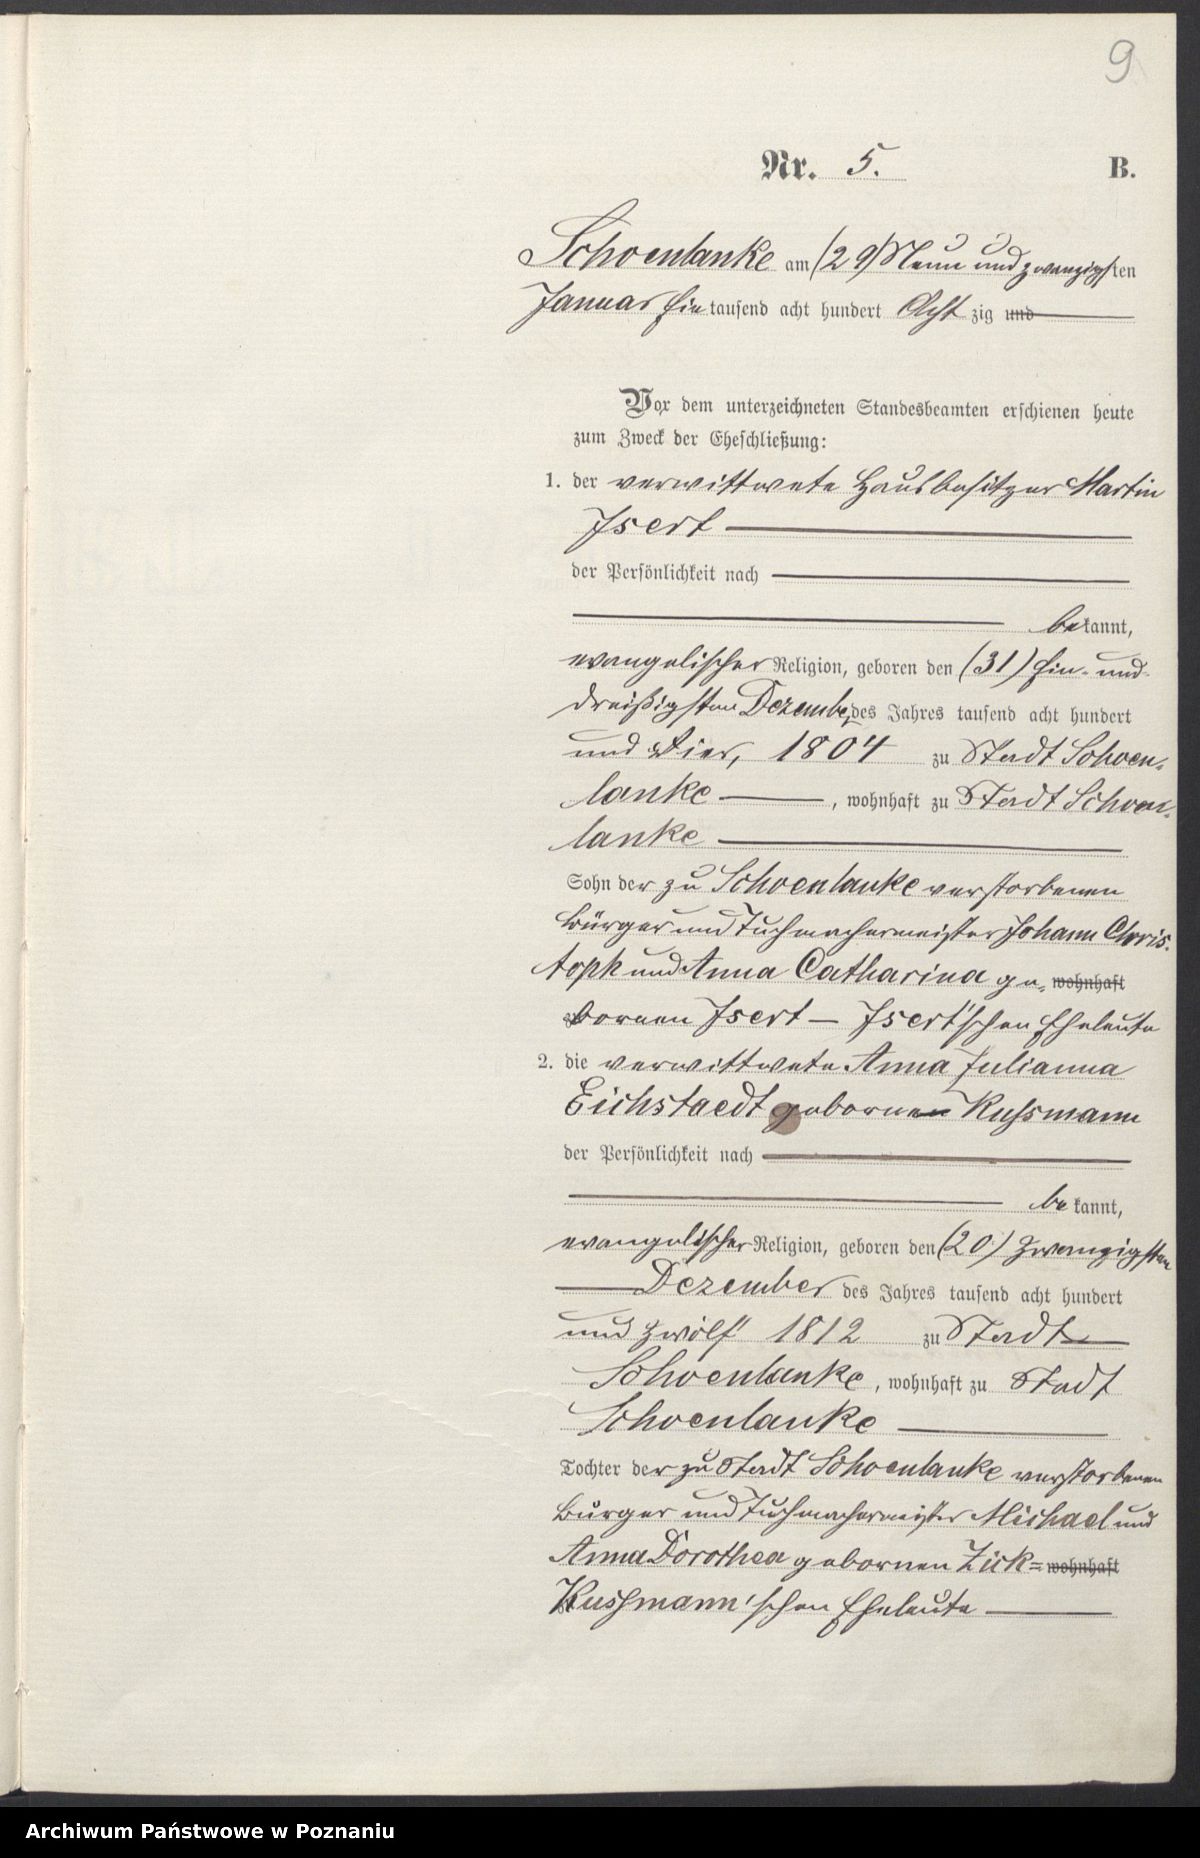 9
Nr. 5. B.
Schoenlanke am (29) Neun und zwanzigsten
Januar Ein tausend acht hundert Acht zig und
Vor dem unterzeichneten Standesbeamten erschienen heute
zum Zweck der Eheschließung:
1. der verwittwete Hausbesitzer Martin
Isert
der Persönlichkeit nach
bekannt,
evangelischer Religion, geboren den (31) Ein- und
dreißigsten Dezember des Jahres tausend acht hundert
und Vier, 1804 zu Stadt Schoen-
lanke, wohnhaft zu Stadt Schoen-
lanke
Sohn der zu Schoenlanke verstorbenen
Bürger und Tuchmachermeister Johann Chris-
toph und Anna Catharina ge- wohnhaft
bornen Isert – Isert'schen Eheleute
2. die verwittwete Anna Julianna
Eichstaedt geborne Kussmann
der Persönlichkeit nach
bekannt,
evangelischer Religion, geboren den (20.) Zwanzigsten
Dezember des Jahres tausend acht hundert
und zwölf 1812 zu Stadt
Schoenlanke, wohnhaft zu Stadt
Schoenlanke
Tochter der zu Stadt Schoenlanke verstorbenen
Bürger und Tuchmachermeister Michael und
Anna Dorothea gebornen Zick= wohnhaft
Kussmann'schen Eheleute
Archiwum Państwowe w Poznaniu